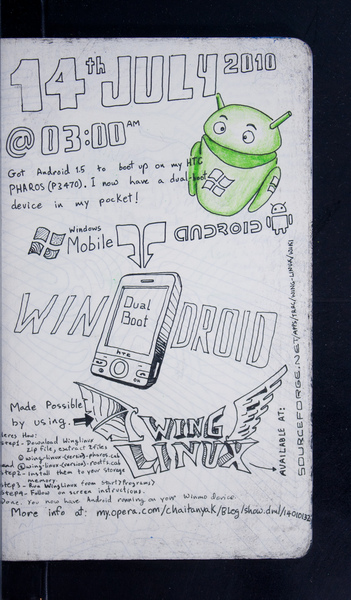 14th JULY 2010
@ 03:00 AM
Got Android 1.5 to boot up on my HTC
PHAROS (P3470). I now have a dual-boot
device in my pocket!
Windows
Mobile
ANDROID
WINDROID
Dual
Boot
htc
Made Possible
by using.
WING
LINUX
AVAILABLE AT:
SOURCEFORGE.NET/APPS/TRAC/WING-LINUX/WIKI
Heres How:
Step1- Download WingLinux
Zip file, extract 2 files
① wing-linux-(version)-pharos.cab
and ② wing-linux-(version)-rootfs.cab
Step2- Install them to your Storage
memory.
Step3- Run WingLinux from Start>Programs>
Step4- Follow on screen instructions.
Done. You now have Android running on your Winmo device.
More info at: my.opera.com/chaitanyak/Blog/show.dml/14010132